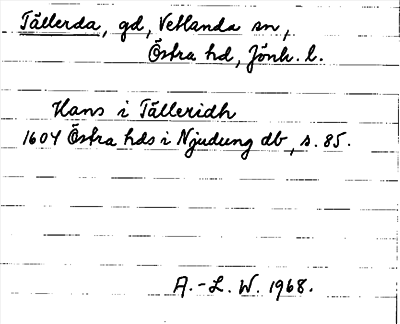 Tällerda, gd, Vetlanda sn,
Östra hd, Jönk. l.
Hans i Tälleridh
1604 Östra hds i Njudung db, s. 85.
A.-L. W. 1968.